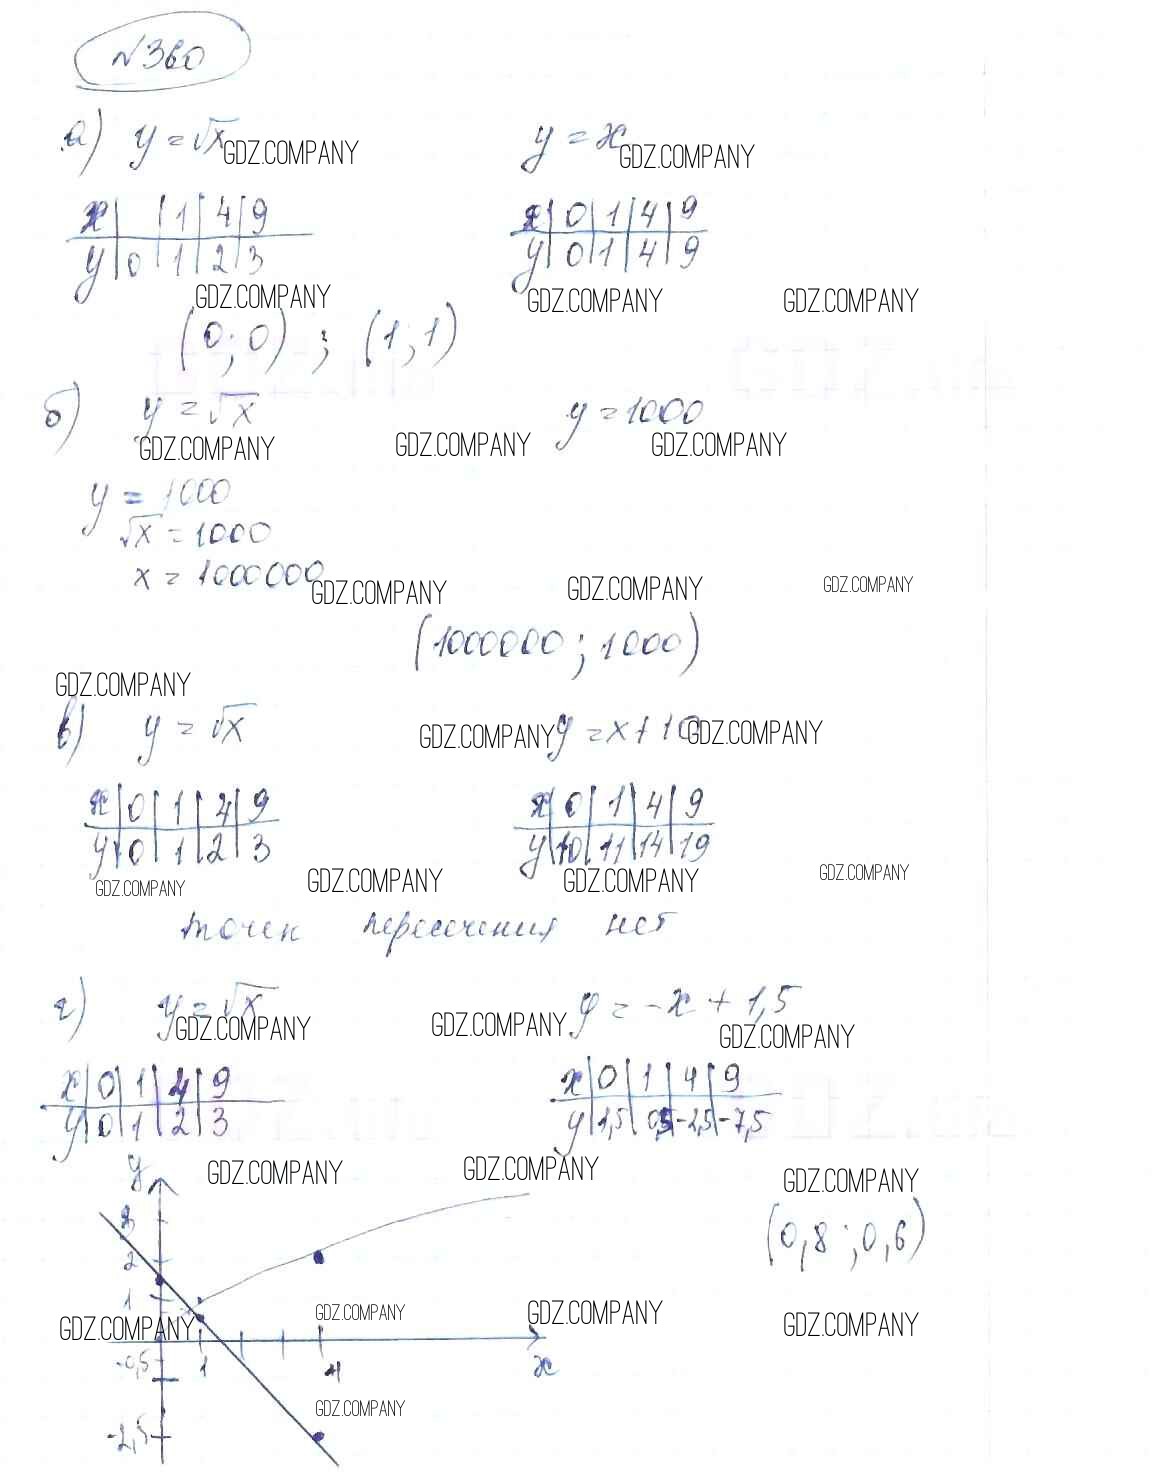 №360
а) y = √x GDZ.COMPANY y = x GDZ.COMPANY
x | | 1 | 4 | 9 x | 0 | 1 | 4 | 9
y | 0 | 1 | 2 | 3 y | 0 | 1 | 4 | 9
GDZ.COMPANY GDZ.COMPANY GDZ.COMPANY
(0; 0) ; (1; 1)
б) y = √x y = 1000
GDZ.COMPANY GDZ.COMPANY GDZ.COMPANY
y = 1000
√x = 1000
x = 1000000 GDZ.COMPANY GDZ.COMPANY GDZ.COMPANY
(1000000; 1000)
GDZ.COMPANY
в) y = √x GDZ.COMPANY y = x + 10 GDZ.COMPANY
x | 0 | 1 | 4 | 9 x | 0 | 1 | 4 | 9
y | 0 | 1 | 2 | 3 y | 10 | 11 | 14 | 19
GDZ.COMPANY GDZ.COMPANY GDZ.COMPANY GDZ.COMPANY
точек пересечения нет
г) y = √x y = -x + 1,5
GDZ.COMPANY GDZ.COMPANY GDZ.COMPANY
x | 0 | 1 | 4 | 9 x | 0 | 1 | 4 | 9
y | 0 | 1 | 2 | 3 y | 1,5 | 0,5 | -2,5 | -7,5
y GDZ.COMPANY GDZ.COMPANY GDZ.COMPANY
3
(0,8; 0,6)
2
1 GDZ.COMPANY GDZ.COMPANY
GDZ.COMPANY GDZ.COMPANY
-0,5 1 4 x
GDZ.COMPANY
-2,5